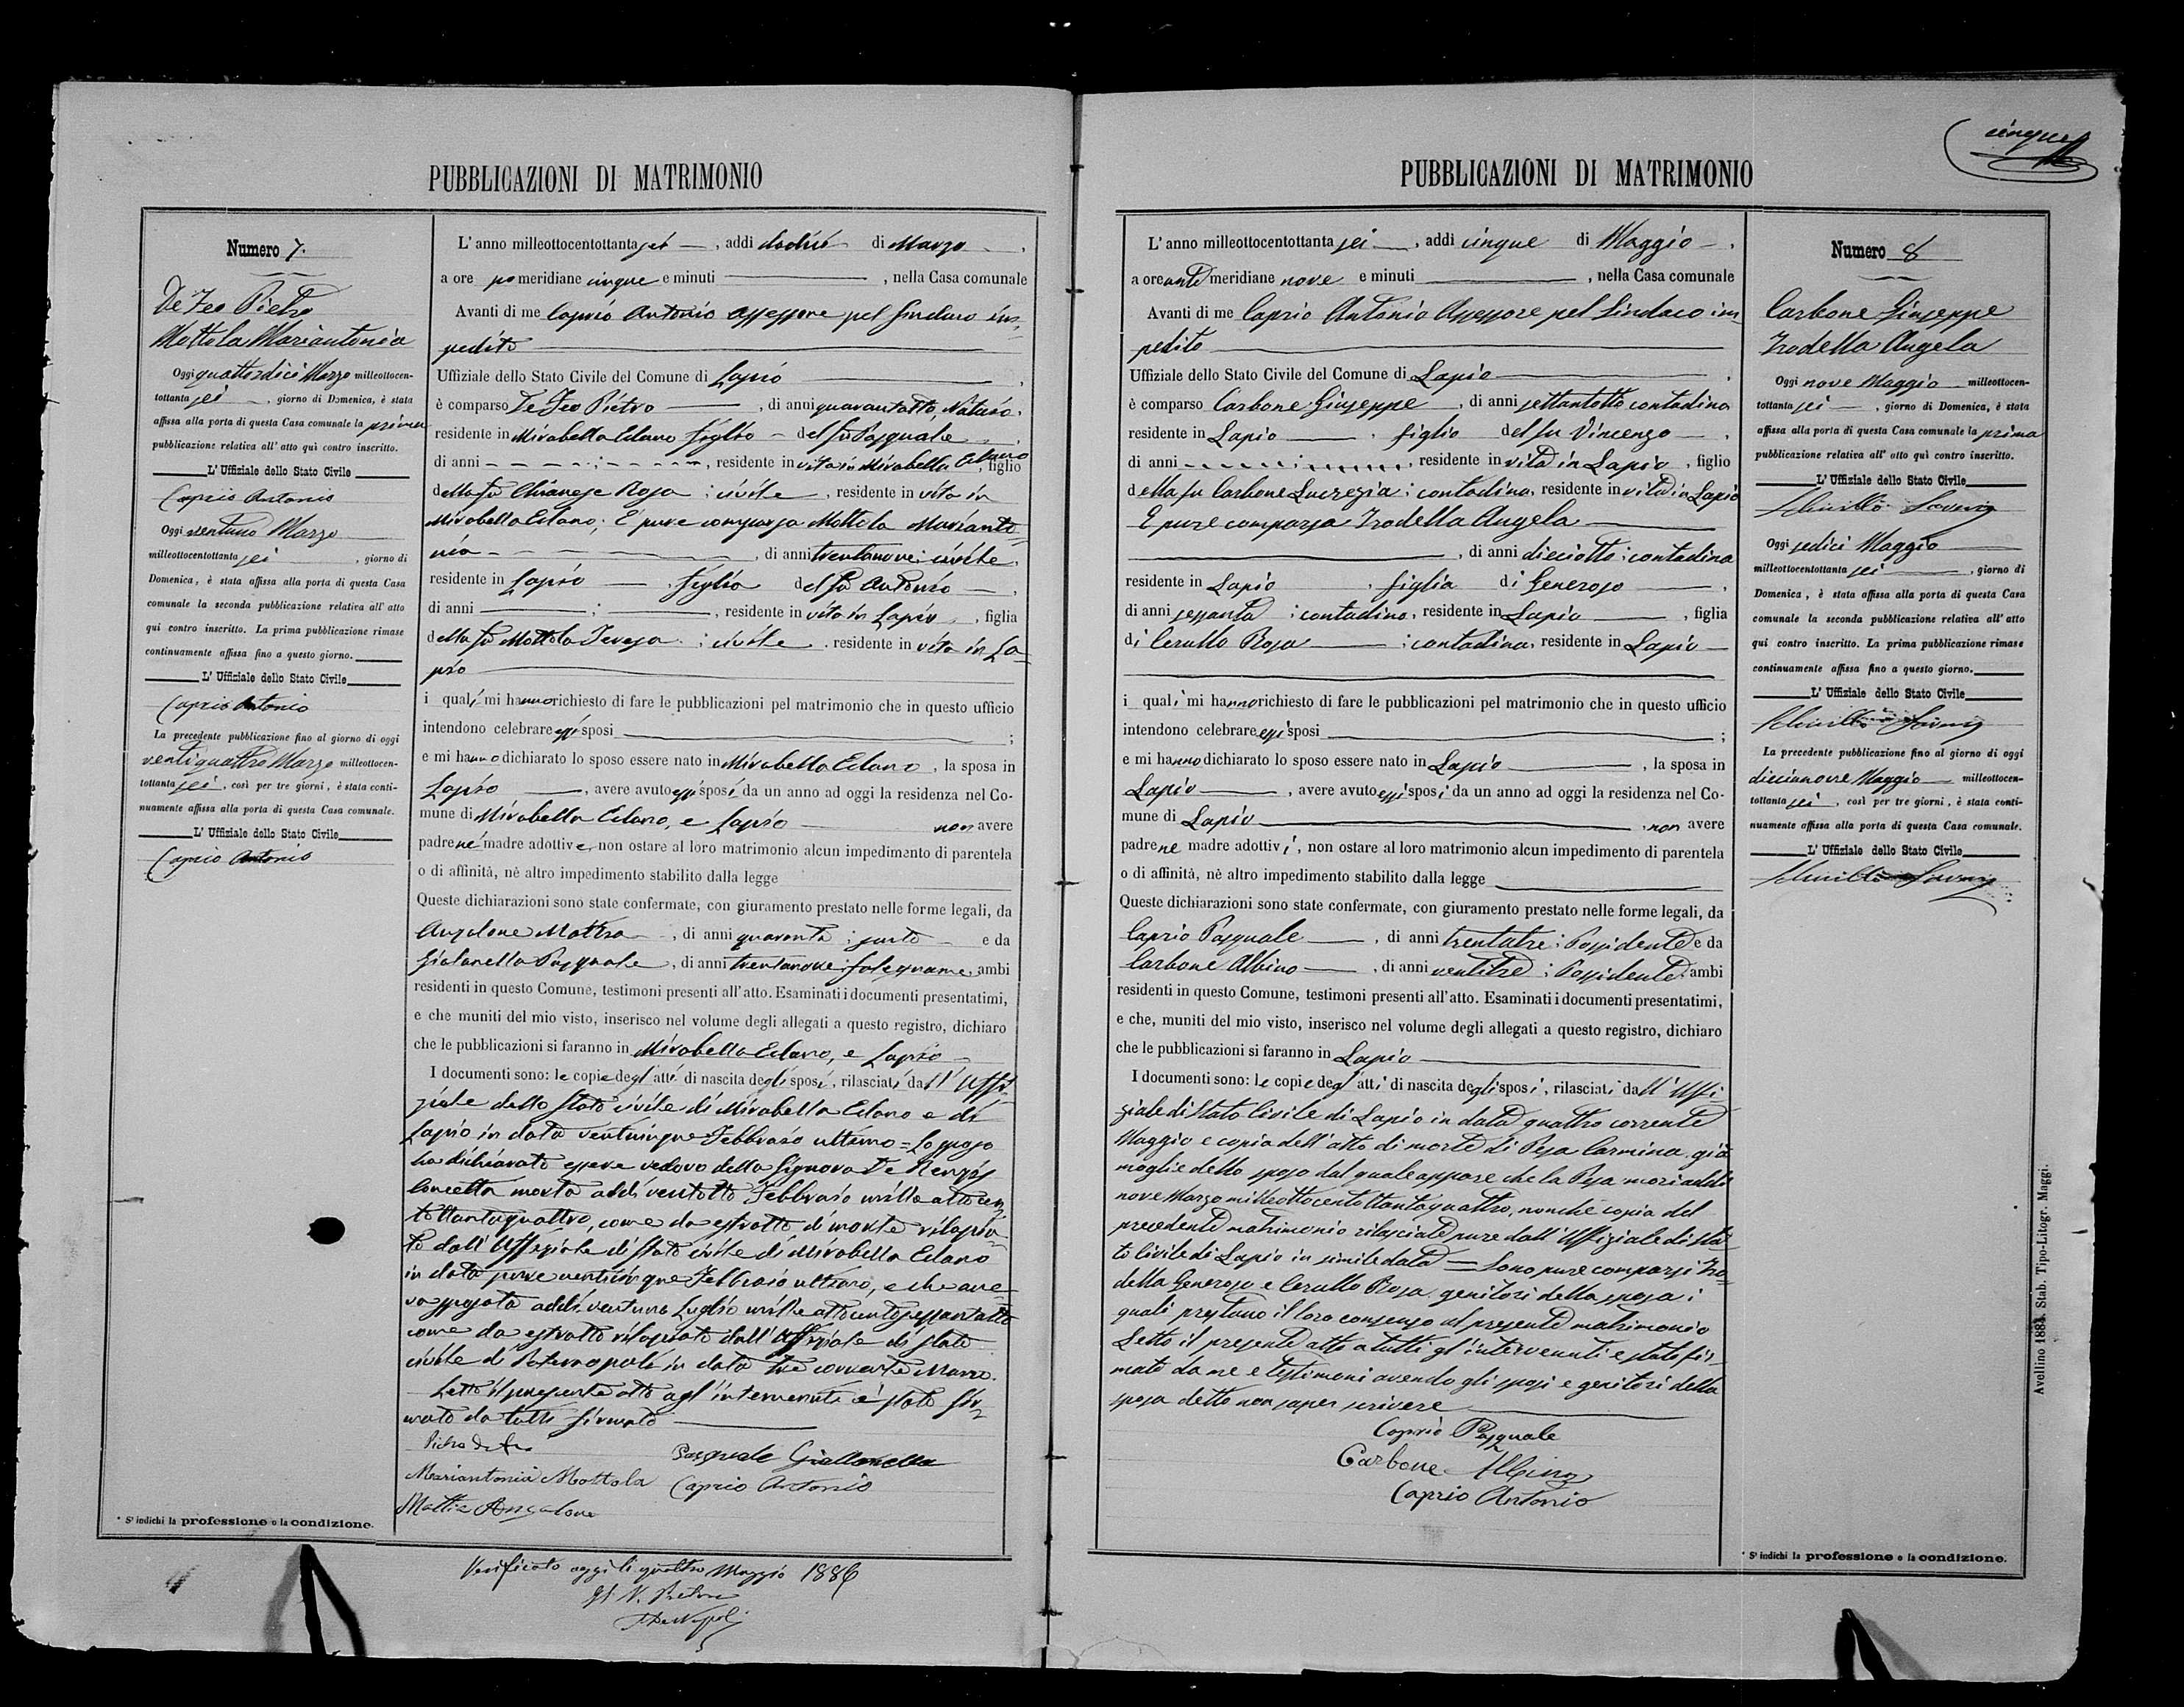 PUBBLICAZIONI DI MATRIMONIO
Numero 7.
De Feo Pietro
Mottola Mariantonia
Oggi quattordici Marzo milleottocen-
tottanta sei, giorno di Domenica, è stata
affissa alla porta di questa Casa comunale la prima
pubblicazione relativa all' atto quì contro inscritto.
L' Uffiziale dello Stato Civile
Caprio Antonio
Oggi ventuno Marzo
milleottocentottanta sei, giorno di
Domenica, è stata affissa alla porta di questa Casa
comunale la seconda pubblicazione relativa all' atto
qui contro inscritto. La prima pubblicazione rimase
continuamente affissa fino a questo giorno.
L' Uffiziale dello Stato Civile
Caprio Antonio
La precedente pubblicazione fino al giorno di oggi
ventiquattro Marzo milleottocen-
tottanta sei, così per tre giorni, è stata conti-
nuamente affissa alla porta di questa Casa comunale.
L' Uffiziale dello Stato Civile
Caprio Antonio
* S' indichi la professione o la condizione.
L' anno milleottocentottanta sei, addì dodici di Marzo,
a ore pomeridiane cinque e minuti, nella Casa comunale
Avanti di me Caprio Antonio Assessore pel Sindaco im-
pedito
Uffiziale dello Stato Civile del Comune di Lapio
è comparso De Feo Pietro, di anni quarantotto, Notaio,
residente in Mirabella Eclano figlio del fu Pasquale
di anni, residente in vita in Mirabella Eclano, figlio
della fu Chianese Rosa; civile, residente in vita in
Mirabella Eclano; E' pure comparsa Mottola Marianto-
nia, di anni trentanove; civile,
residente in Lapio, figlia del fu Antonio,
di anni ; , residente in vita in Lapio, figlia
della fu Mottola Teresa; civile, residente in vita in La-
pio
i quali mi hanno richiesto di fare le pubblicazioni pel matrimonio che in questo ufficio
intendono celebrare essi sposi ;
e mi hanno dichiarato lo sposo essere nato in Mirabella Eclano, la sposa in
Lapio, avere avuto essi sposi da un anno ad oggi la residenza nel Co-
mune di Mirabella Eclano, e Lapio non avere
padre nè madre adottivi, non ostare al loro matrimonio alcun impedimento di parentela
o di affinità, nè altro impedimento stabilito dalla legge
Queste dichiarazioni sono state confermate, con giuramento prestato nelle forme legali, da
Angelone Mattia, di anni quaranta; sarto e da
Giallanella Pasquale, di anni trentanove; falegname, ambi
residenti in questo Comune, testimoni presenti all' atto. Esaminati i documenti presentatimi,
e che muniti del mio visto, inserisco nel volume degli allegati a questo registro, dichiaro
che le pubblicazioni si faranno in Mirabella Eclano, e Lapio
I documenti sono: le copie degl' atti di nascita degli sposi, rilasciati dall' Uffi-
ziale dello Stato civile di Mirabella Eclano e di
Lapio in data venticinque Febbraio ultimo = Lo sposo
ha dichiarato essere vedovo della Signora De Renzis
Concetta morta addì ventotto Febbraio mille ottocen-
tottantaquattro, come da estratto di morte rilascia-
to dall' Uffiziale di Stato civile di Mirabella Eclano
in data pure venticinque Febbraio ultimo, e che ave-
va sposata addì ventuno Luglio mille ottocentosessantotto
come da estratto rilasciato dall' Uffiziale di Stato
civile di Paternopoli in data tre corrente Marzo.
Letto il presente atto agl' intervenuti è stato fir-
mato da tutti firmato
Pietro de Feo
Pasquale Giallanella
Mariantonia Mottola
Caprio Antonio
Mattia Angelone
Verificato oggi li quattro Maggio 1886
PUBBLICAZIONI DI MATRIMONIO
cinque
L' anno milleottocentottanta sei, addì cinque di Maggio,
a ore antimeridiane nove e minuti, nella Casa comunale
Avanti di me Caprio Antonio Assessore pel Sindaco im-
pedito
Uffiziale dello Stato Civile del Comune di Lapio
è comparso Carbone Giuseppe, di anni settantotto contadino
residente in Lapio, figlio del fu Vincenzo,
di anni, residente in vita in Lapio, figlio
della fu Carbone Lucrezia; contadina, residente in vita in Lapio
E pure comparsa Irodella Angela
, di anni dieciotto; contadina
residente in Lapio, figlia di Generoso,
di anni sessanta; contadino, residente in Lapio, figlia
di Cerullo Rosa; contadina, residente in Lapio
i quali mi hanno richiesto di fare le pubblicazioni pel matrimonio che in questo ufficio
intendono celebrare essi sposi ;
e mi hanno dichiarato lo sposo essere nato in Lapio, la sposa in
Lapio, avere avuto essi sposi da un anno ad oggi la residenza nel Co-
mune di Lapio, non avere
padre ne madre adottivi, non ostare al loro matrimonio alcun impedimento di parentela
o di affinità, nè altro impedimento stabilito dalla legge
Queste dichiarazioni sono state confermate, con giuramento prestato nelle forme legali, da
Caprio Pasquale, di anni trentatre; Possidente e da
Carbone Albino, di anni ventitre; Possidente, ambi
residenti in questo Comune, testimoni presenti all' atto. Esaminati i documenti presentatimi,
e che, muniti del mio visto, inserisco nel volume degli allegati a questo registro, dichiaro
che le pubblicazioni si faranno in Lapio
I documenti sono: le copie degl' atti di nascita degli sposi, rilasciati dall' Uffi-
ziale di Stato Civile di Lapio in data quattro corrente
Maggio e copia dell' atto di morte di Pesa Carmina già
moglie dello sposo dal quale appare che la Pesa morì addì
nove Marzo milleottocentottantaquattro, nonchè copia del
precedente matrimonio rilasciate pure dall' Uffiziale di Sta-
to Civile di Lapio in simile data = Sono pure comparsi Iro-
della Generoso e Cerullo Rosa genitori della sposa i
quali prestano il loro consenso al presente matrimonio
Letto il presente atto a tutti gl' intervenuti e stato fir-
mato da me e testimoni avendo gli sposi e genitori della
sposa detto non saper scrivere
Caprio Pasquale
Carbone Albino
Caprio Antonio
Numero 8
Carbone Giuseppe
Irodella Angela
Oggi nove Maggio milleottocen-
tottanta sei, giorno di Domenica, è stata
affissa alla porta di questa Casa comunale la prima
pubblicazione relativa all' atto quì contro inscritto.
L' Uffiziale dello Stato Civile
Oggi sedici Maggio
milleottocentottanta sei, giorno di
Domenica, è stata affissa alla porta di questa Casa
comunale la seconda pubblicazione relativa all' atto
qui contro inscritto. La prima pubblicazione rimase
continuamente affissa fino a questo giorno.
L' Uffiziale dello Stato Civile
La precedente pubblicazione fino al giorno di oggi
diecianove Maggio milleottocen-
tottanta sei, così per tre giorni, è stata conti-
nuamente affissa alla porta di questa Casa comunale.
L' Uffiziale dello Stato Civile
* S' indichi la professione o la condizione.
Avellino 1884. Stab. Tipo-Litogr. Maggi.